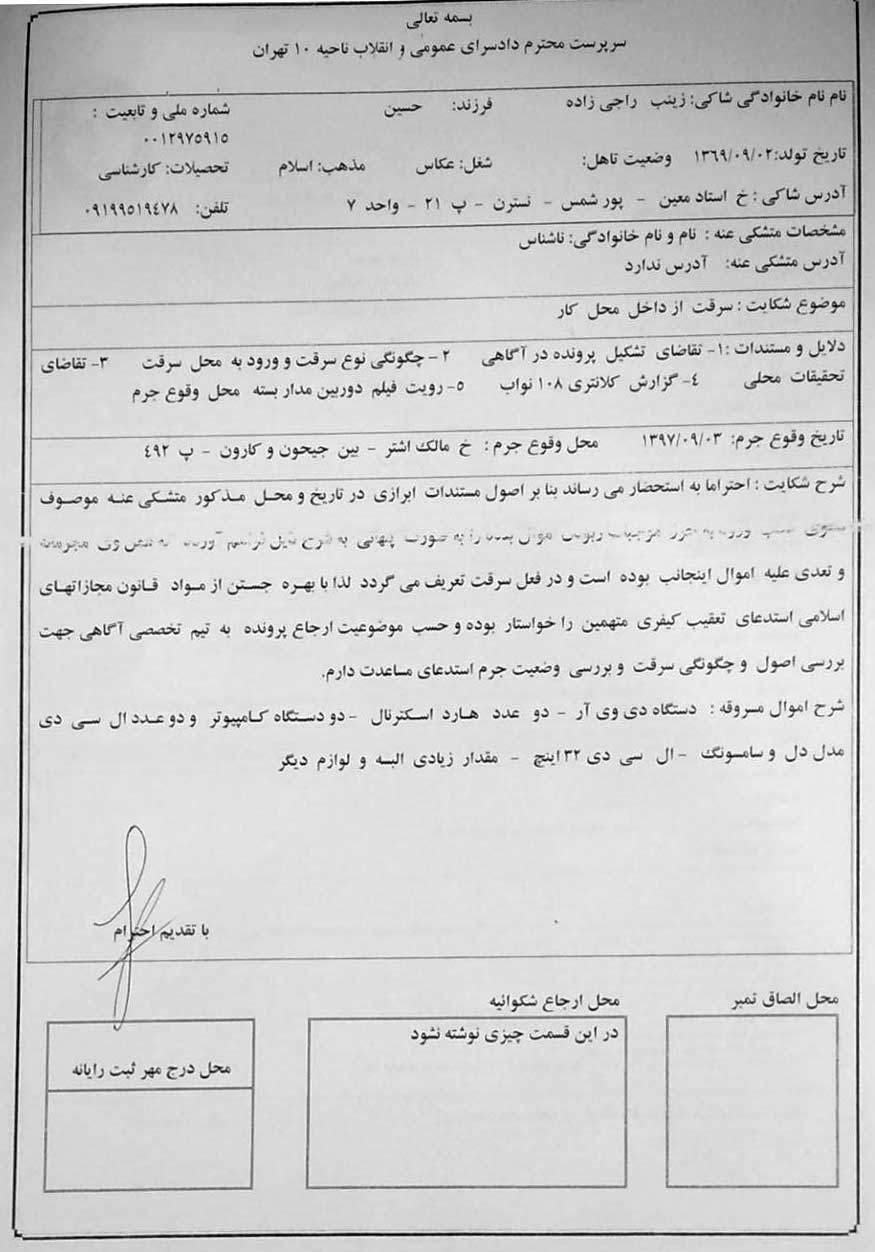 بسمه تعالی
سرپرست محترم دادسرای عمومی و انقلاب ناحیه ۱۰ تهران
نام نام خانوادگی شاکی: زینب راجی زاده فرزند: حسین شماره ملی و تابعیت :
۰۰۱۲۹۷۵۹۱۵
تاریخ تولد:۱۳۶۹/۰۹/۰۲ وضعیت تاهل: شغل: عکاس مذهب: اسلام تحصیلات: کارشناسی
آدرس شاکی : خ استاد معین - پور شمس - نسترن - پ ۲۱ - واحد ۷ تلفن: ۰۹۱۹۹۵۱۹۴۷۸
مشخصات متشکی عنه : نام و نام خانوادگی: ناشناس
آدرس متشکی عنه: آدرس ندارد
موضوع شکایت : سرقت از داخل محل کار
دلایل و مستندات :۱- تقاضای تشکیل پرونده در آگاهی ۲ - چگونگی نوع سرقت و ورود به محل سرقت ۳- تقاضای
تحقیقات محلی ۴- گزارش کلانتری ۱۰۸ نواب ۵- رویت فیلم دوربین مدار بسته محل وقوع جرم
تاریخ وقوع جرم: ۱۳۹۷/۰۹/۰۳ محل وقوع جرم : خ مالک اشتر - بین جیحون و کارون - پ ۴۹۲
شرح شکایت : احتراما به استحضار می رساند بنا بر اصول مستندات ابرازی در تاریخ و محل مذکور متشکی عنه موصوف
را به صورت پنهانی به شرح ذیل
و تعدی علیه اموال اینجانب بوده است و در فعل سرقت تعریف می گردد لذا با بهره جستن از مواد قانون مجازاتهای
اسلامی استدعای تعقیب کیفری متهمین را خواستار بوده و حسب موضوعیت ارجاع پرونده به تیم تخصصی آگاهی جهت
بررسی اصول و چگونگی سرقت و بررسی وضعیت جرم استدعای مساعدت دارم.
شرح اموال مسروقه : دستگاه دی وی آر - دو عدد هارد اسکترنال - دو دستگاه کامپیوتر و دو عدد ال سی دی
مدل دل و سامسونگ - ال سی دی ۳۲ اینچ - مقدار زیادی البسه و لوازم دیگر
با تقدیم احترام
محل الصاق تمبر
محل ارجاع شکوائیه
در این قسمت چیزی نوشته نشود
محل درج مهر ثبت رایانه